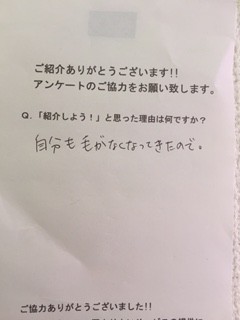 ご紹介ありがとうございます!!
アンケートのご協力をお願い致します。
Q.「紹介しよう!」と思った理由は何ですか?
自分も毛がなくなってきたので。
ご協力ありがとうございました!!